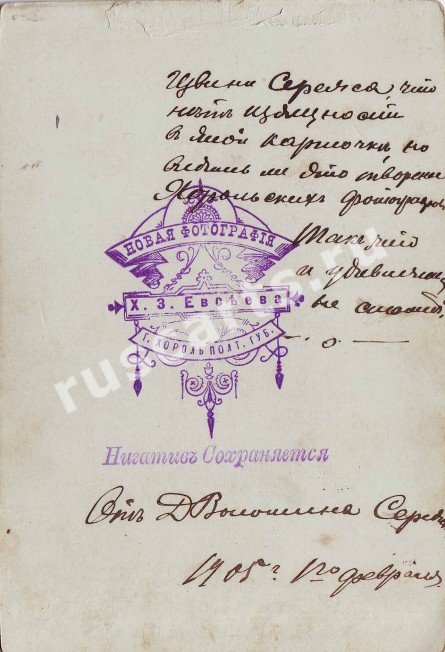 Извини Сережа, что
нѣтъ изящности
в этой карточкѣ, но
ли это творение
Хорольскихъ фотографов
Такъ что
и удивляться
не стоитъ,
— о —
НОВАЯ ФОТОГРАФІЯ
Х. З. Евсѣева
Г. ХОРОЛЬ ПОЛТ. ГУБ.
Нигативъ Сохраняется
Отъ Д Волошина
1905 г 1го февраля
rus-cards.ru